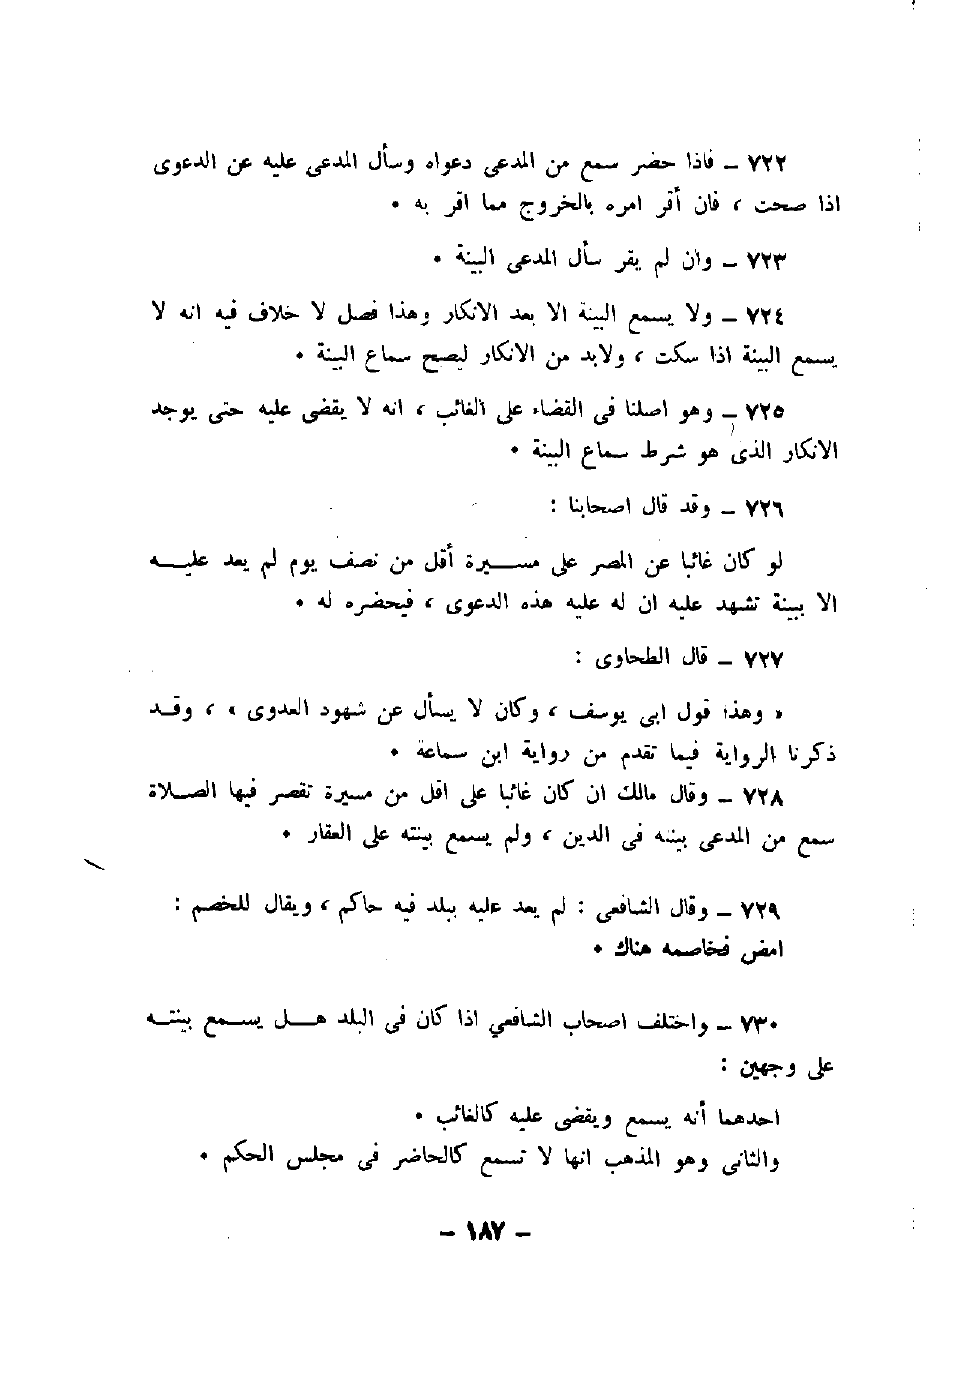 ٧٢٢ ــ فاذا حضر سمع من المدعى دعواه وسأل المدعى عليه عن الدعوى
اذا صحت ، فان أقر امره بالخروج مما اقر به ٠
٧٢٣ ــ وان لم يقر سأل المدعى البينة ٠
٧٢٤ ــ ولا يسمع البينة الا بعد الانكار وهذا فصل لا خلاف فيه انه لا
يسمع البينة اذا سكت ، ولابد من الانكار ليصح سماع البينة ٠
٧٢٥ ــ وهو اصلنا فى القضاء على الغائب ، انه لا يقضى عليه حتى يوجد
الانكار الذى هو شرط سماع البينة ٠
٧٢٦ ــ وقد قال اصحابنا :
لو كان غائبا عن المصر على مســـيرة أقل من نصف يوم لم يعد عليـــه
الا ببينة تشهد عليه ان له عليه هذه الدعوى ، فيحضره له ٠
٧٢٧ ــ قال الطحاوى :
« وهذا قول ابى يوسف ، وكان لا يسأل عن شهود العدوى » ، وقـد
ذكرنا الرواية فيما تقدم من رواية ابن سماعة ٠
٧٢٨ ــ وقال مالك ان كان غائبا على اقل من مسيرة تقصر فيها الصـلاة
سمع من المدعى بينته فى الدين ، ولم يسمع بينته على العقار ٠
٧٢٩ ــ وقال الشافعى : لم يعد عليه ببلد فيه حاكم ، ويقال للخصم :
امض فخاصمه هناك ٠
٧٣٠ ــ واختلف اصحاب الشافعي اذا كان فى البلد هـــل يســمع بينتــه
على وجهين :
احدهما أنه يسمع ويقضى عليه كالغائب ٠
والثانى وهو المذهب انها لا تسمع كالحاضر فى مجلس الحكم ٠
– ١٨٧ –